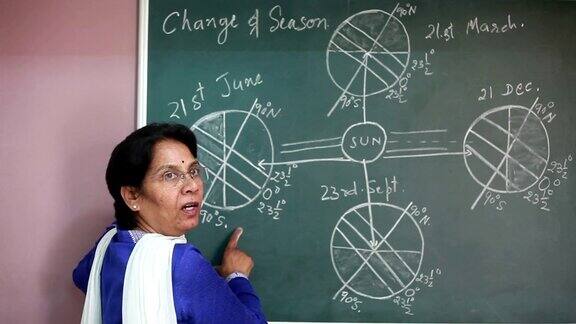 Change of Season.
90°N
21.st March.
23½°
0°
23½°
90°S
21st June
90°N
23½°
0°
23½°
90°S.
SUN
21 DEC.
90°N
23½°
0°
23½°
90°S
23rd Sept.
90°N.
23½°
0°
23½°
90°S